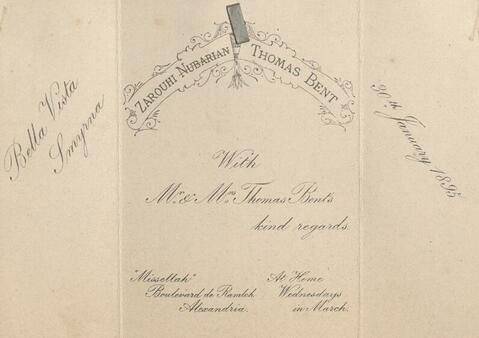 Bella Vista
Smyrna
ZAROUHI NUBARIAN
THOMAS BENT
With
Mr. & Mrs. Thomas Bent's
kind regards.
"Missellah"
Boulevard de Ramleh
Alexandria.
At Home
Wednesdays
in March.
30th January 1895